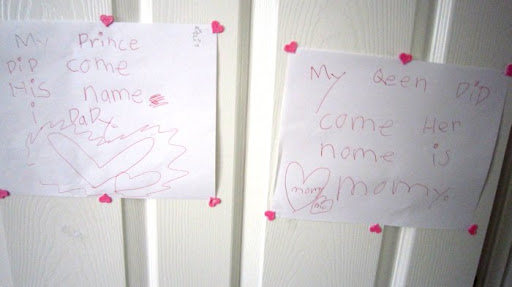 My Prince
DiD come
His name
i DaDy.
My Qeen DiD
come Her
name is
momy.
mom